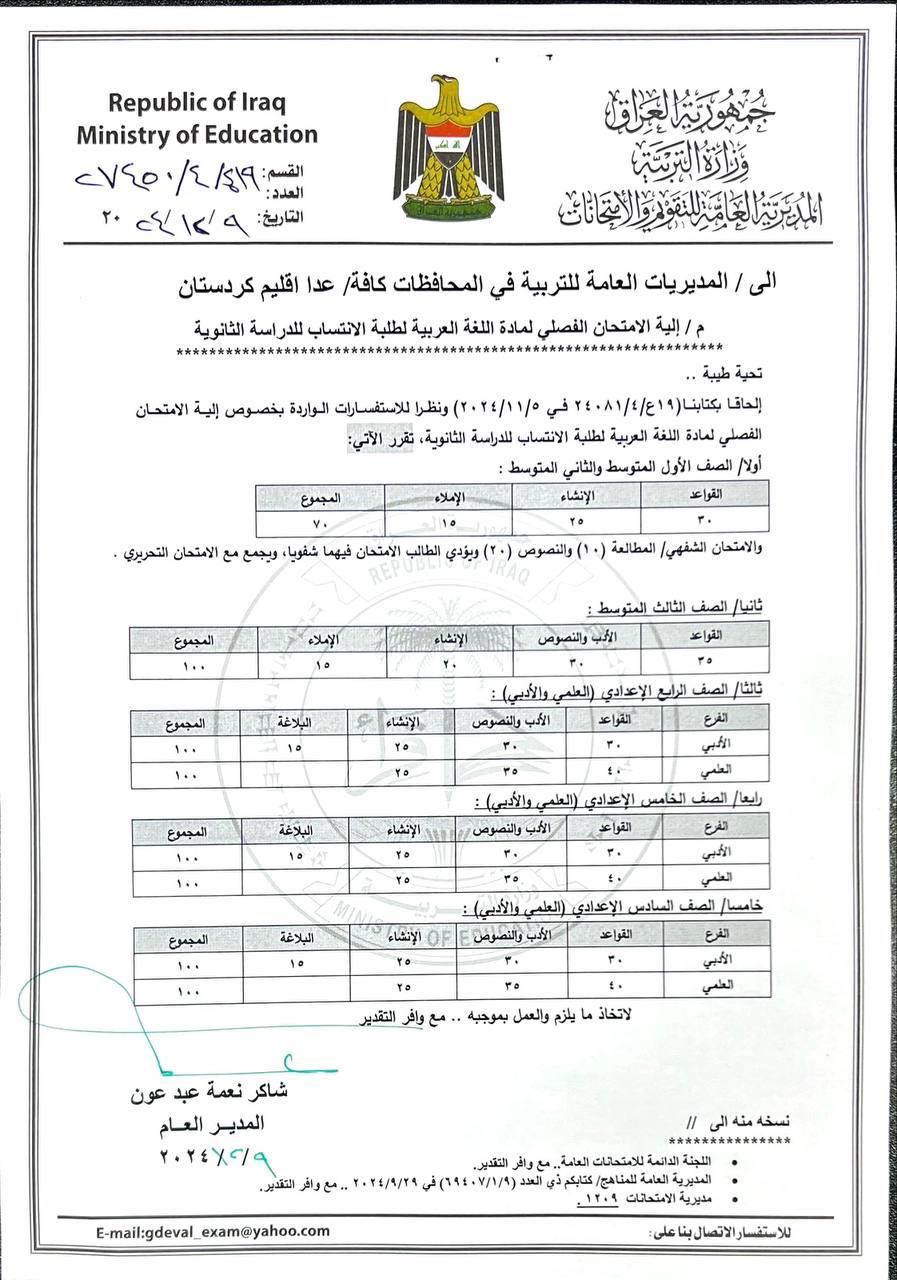 Republic of Iraq
Ministry of Education
جمهورية العراق
وزارة التربية
المديرية العامة للتقويم والامتحانات
القسم:
العدد:
التاريخ: ٩ / ١٢ / ٢٠٢٤
الى / المديريات العامة للتربية في المحافظات كافة/ عدا اقليم كردستان
م / إلية الامتحان الفصلي لمادة اللغة العربية لطلبة الانتساب للدراسة الثانوية
****************************************************************
تحية طيبة ..
إلحاقا بكتابنا(١٩ع/٢٤٠٨١/٤ في ٢٠٢٤/١١/٥) ونظرا للاستفسارات الواردة بخصوص إلية الامتحان
الفصلي لمادة اللغة العربية لطلبة الانتساب للدراسة الثانوية، تقرر الآتي:
أولا/ الصف الأول المتوسط والثاني المتوسط :
القواعد الإنشاء الإملاء المجموع
٣٠ ٢٥ ١٥ ٧٠
والامتحان الشفهي/ المطالعة (١٠) والنصوص (٢٠) ويؤدي الطالب الامتحان فيهما شفويا، ويجمع مع الامتحان التحريري .
ثانيا/ الصف الثالث المتوسط :
القواعد الأدب والنصوص الإنشاء الإملاء المجموع
٣٥ ٣٠ ٢٠ ١٥ ١٠٠
ثالثا/ الصف الرابع الإعدادي (العلمي والأدبي) :
الفرع القواعد الأدب والنصوص الإنشاء البلاغة المجموع
الأدبي ٣٠ ٣٠ ٢٥ ١٥ ١٠٠
العلمي ٤٠ ٣٥ ٢٥ ١٠٠
رابعا/ الصف الخامس الإعدادي (العلمي والأدبي) :
الفرع القواعد الأدب والنصوص الإنشاء البلاغة المجموع
الأدبي ٣٠ ٣٠ ٢٥ ١٥ ١٠٠
العلمي ٤٠ ٣٥ ٢٥ ١٠٠
خامسا/ الصف السادس الإعدادي (العلمي والأدبي) :
الفرع القواعد الأدب والنصوص الإنشاء البلاغة المجموع
الأدبي ٣٠ ٣٠ ٢٥ ١٥ ١٠٠
العلمي ٤٠ ٣٥ ٢٥ ١٠٠
REPUBLIC OF IRAQ
MINISTRY OF EDUCATION
لاتخاذ ما يلزم والعمل بموجبه .. مع وافر التقدير
شاكر نعمة عبد عون
المديـر العـام
٢٠٢٤/١٢/٩
نسخه منه الى //
***************
• اللجنة الدائمة للامتحانات العامة.. مع وافر التقدير.
• المديرية العامة للمناهج/ كتابكم ذي العدد (٦٩٤٠٧/١/٩) في ٢٠٢٤/٩/٢٩ .. مع وافر التقدير.
• مديرية الامتحانات ١٢٠٩ .
للاستفسار الاتصال بنا على:
E-mail:gdeval_exam@yahoo.com